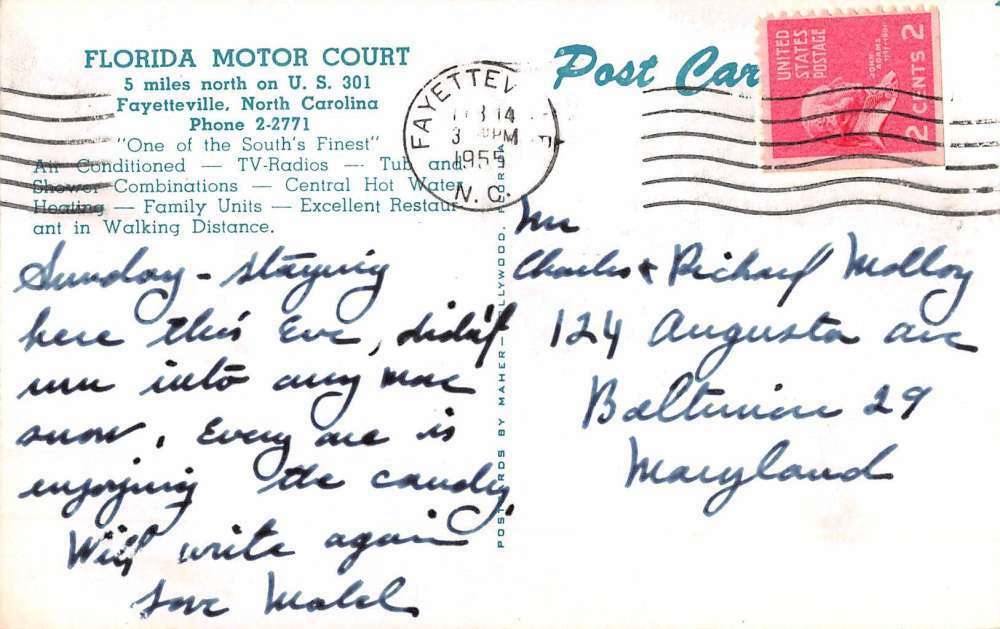 FLORIDA MOTOR COURT
5 miles north on U. S. 301
Fayetteville, North Carolina
Phone 2-2771
"One of the South's Finest"
Air Conditioned — TV-Radios — Tub and
Shower Combinations — Central Hot Water
Heating — Family Units — Excellent Restaur-
ant in Walking Distance.
Sunday - staying
here this Eve, didn't
run into any more
snow. Every one is
enjoying the candy,
Will write again
Love Mabel
POSTCARDS BY MAHER-HOLLYWOOD, FLORIDA
FAYETTEV
14
3 PM
1955
N. C.
Post Car
UNITED
STATES
POSTAGE
JOHN
ADAMS
1797-1801
2 CENTS 2
Mr
Charles & Richard Molloy
124 Augusta ave
Baltimore 29
Maryland